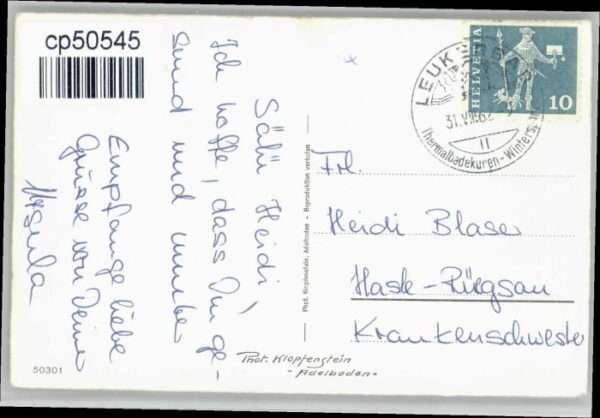 cp50545
Sälü Heidi,
Ich hoffe, dass Du ge-
sund und munter
Empfange liebe
Grüsse von Deiner
Ursula
50301
Phot. Klopfenstein, Adelboden - Reproduktion verboten
Phot. Klopfenstein
- Adelboden -
HELVETIA
10
LEUK
31.VII.62
11
Thermalbadekuren - Winter
Frl.
Heidi Blaser
Hasle-Rüegsau
Krankenschwester